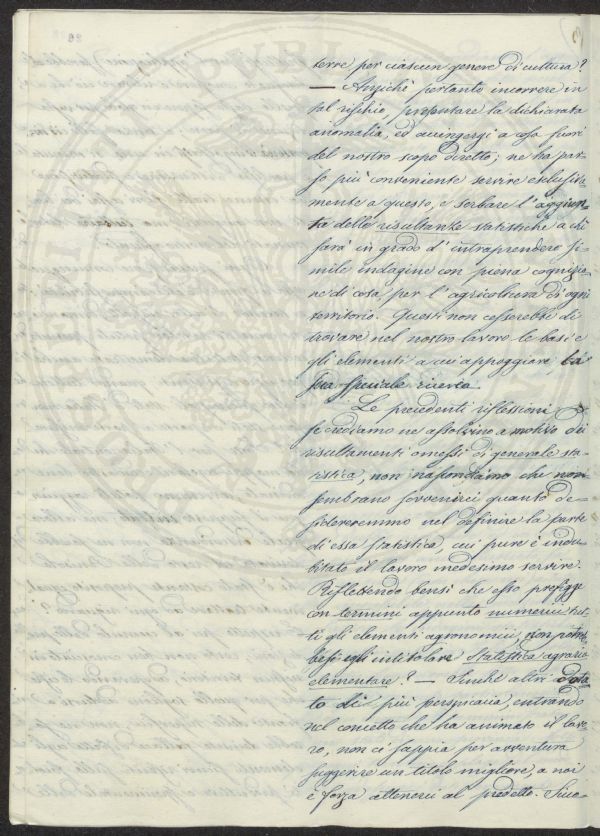 terre per ciascun genere di cultura?
— Anzichè pertanto incorrere in
tal rischio, presentare la dichiarata
anomalia, ed accingerci a cosa fuori
del nostro scopo diretto; ne ha par-
so più conveniente servire esclusiva-
mente a questo, e serbare l'aggiun-
ta delle risultanze statistiche a chi
sarà in grado d'intraprendere si-
mile indagine con piena cognizio-
ne di cosa, per l'agricoltura di ogni
territorio. Questi non cesserebbe di
trovare nel nostro lavoro le basi e
gli elementi a cui appoggiare la
sua speciale ricerca.
Le precedenti riflessioni
se crediamo ne assolvino a motivo dei
risultamenti omessi di generale sta-
tistica, non nascondiamo che non
sembrano sovvenirci quanto de-
sidereremmo nel definire la parte
di essa statistica, cui pure è indu-
bitato il lavoro medesimo servire.
Riflettendo bensì che esso prefigge
con termini appunto numerici tut-
ti gli elementi agronomici, non potreb-
besi egli intitolare Statistica agraria
elementare? — Finchè altri dota-
to di più perspicacia, entrando
nel concetto che ha animato il lavo-
ro, non ci sappia per avventura
suggerire un titolo migliore, a noi
è forza attenerci al predetto.